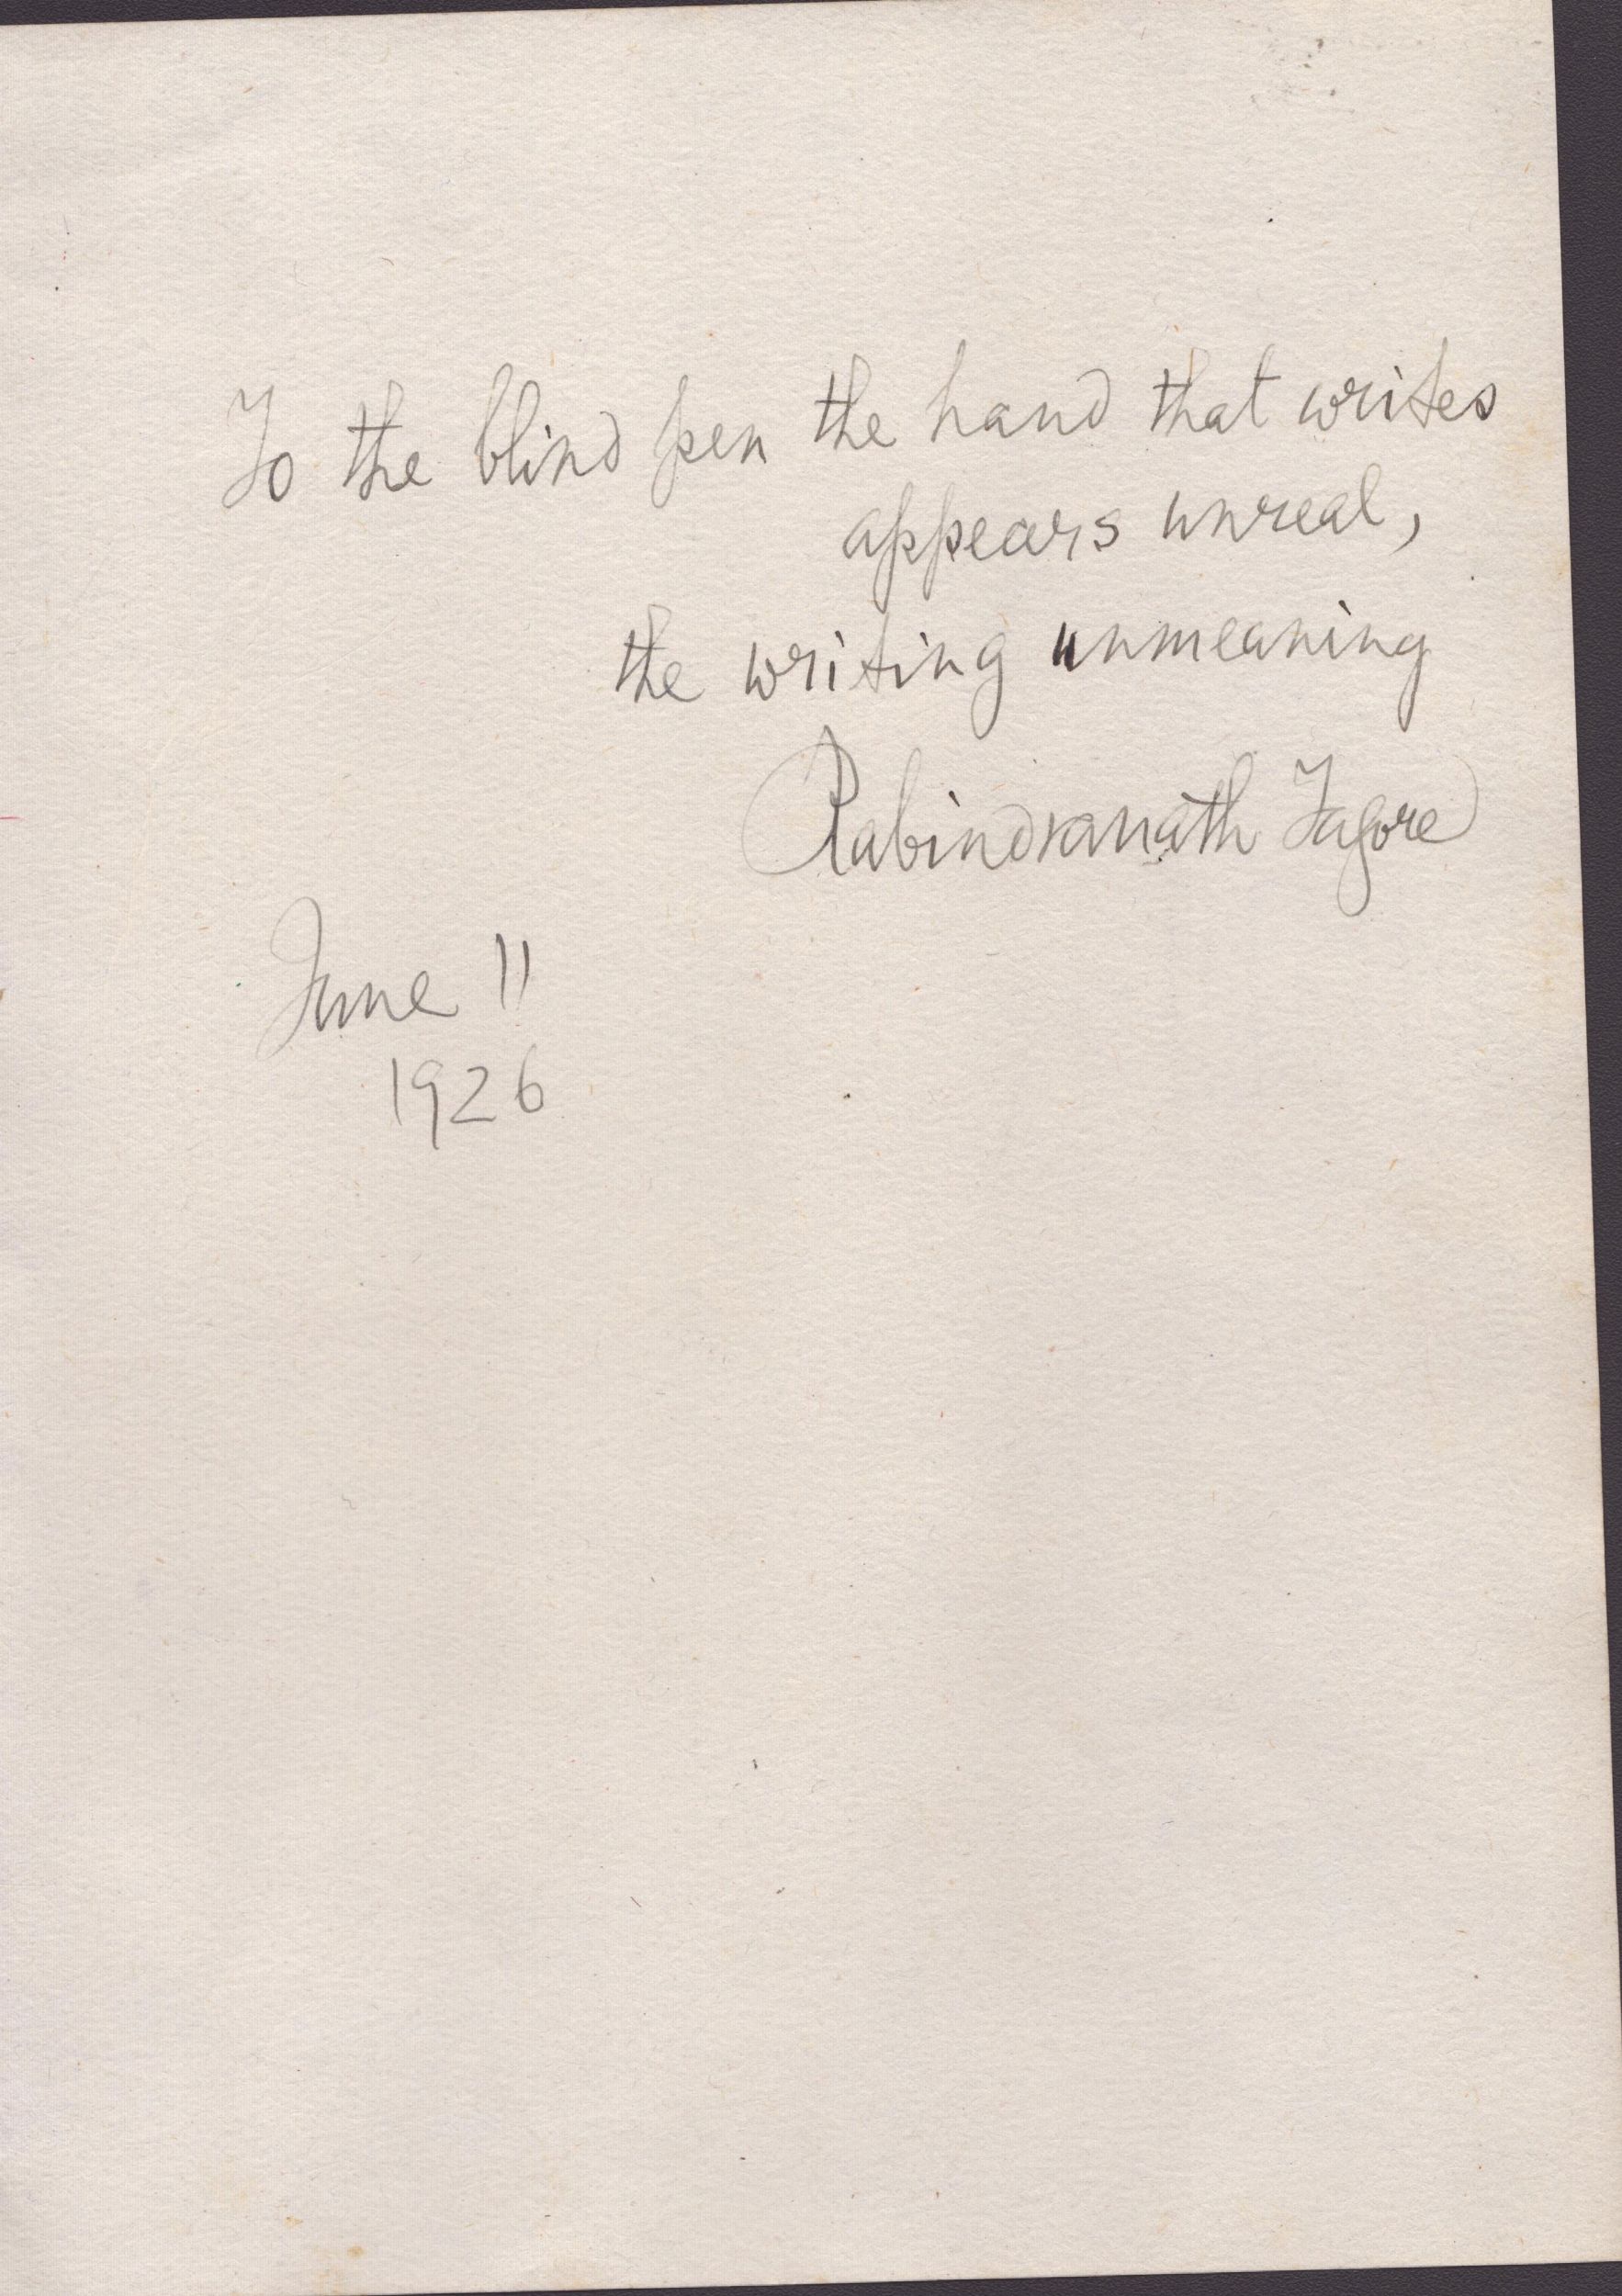 To the blind pen the hand that writes
appears unreal,
the writing unmeaning
Rabindranath Tagore
June 11
1926